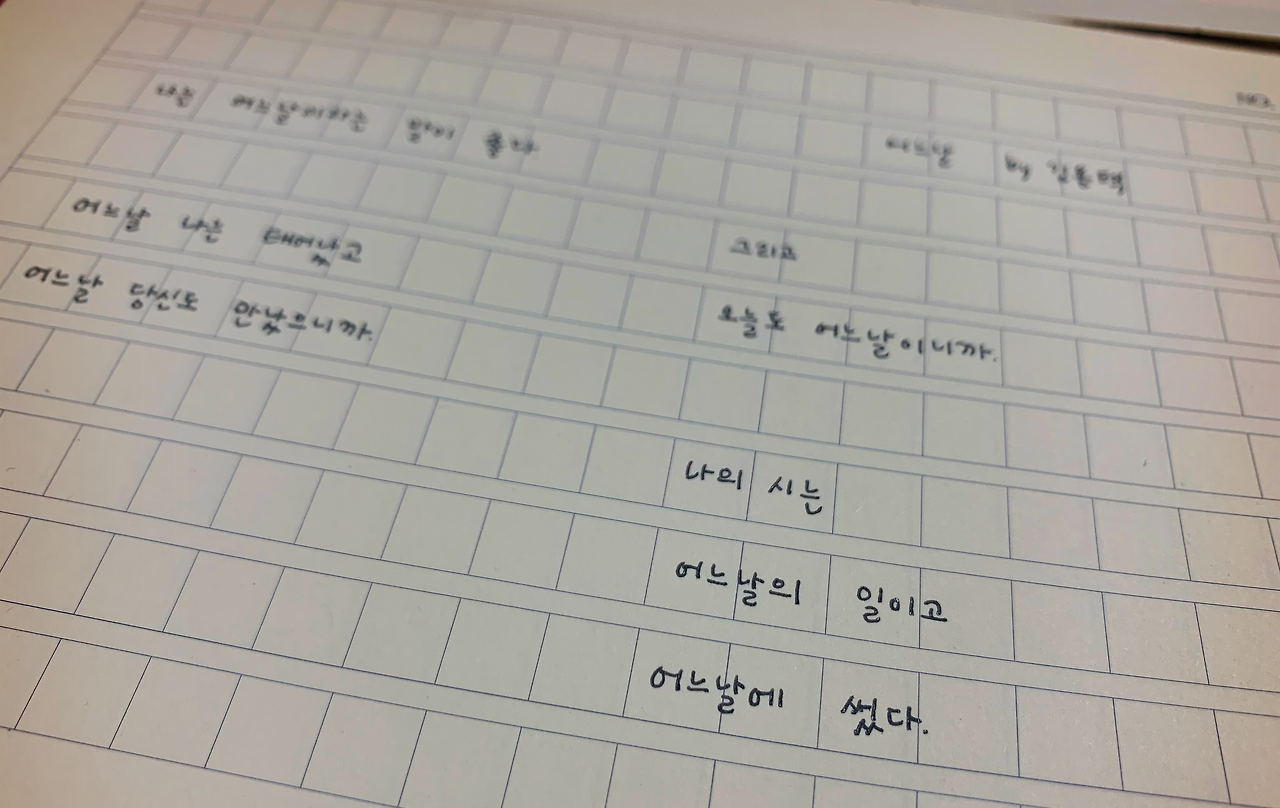 어느날 by 김용택
나는 어느날이라는 말이 좋다
어느날 나는 태어났고
어느날 당신도 만났으니까.
그리고
오늘도 어느날이니까.
나의 시는
어느날의 일이고
어느날에 썼다.